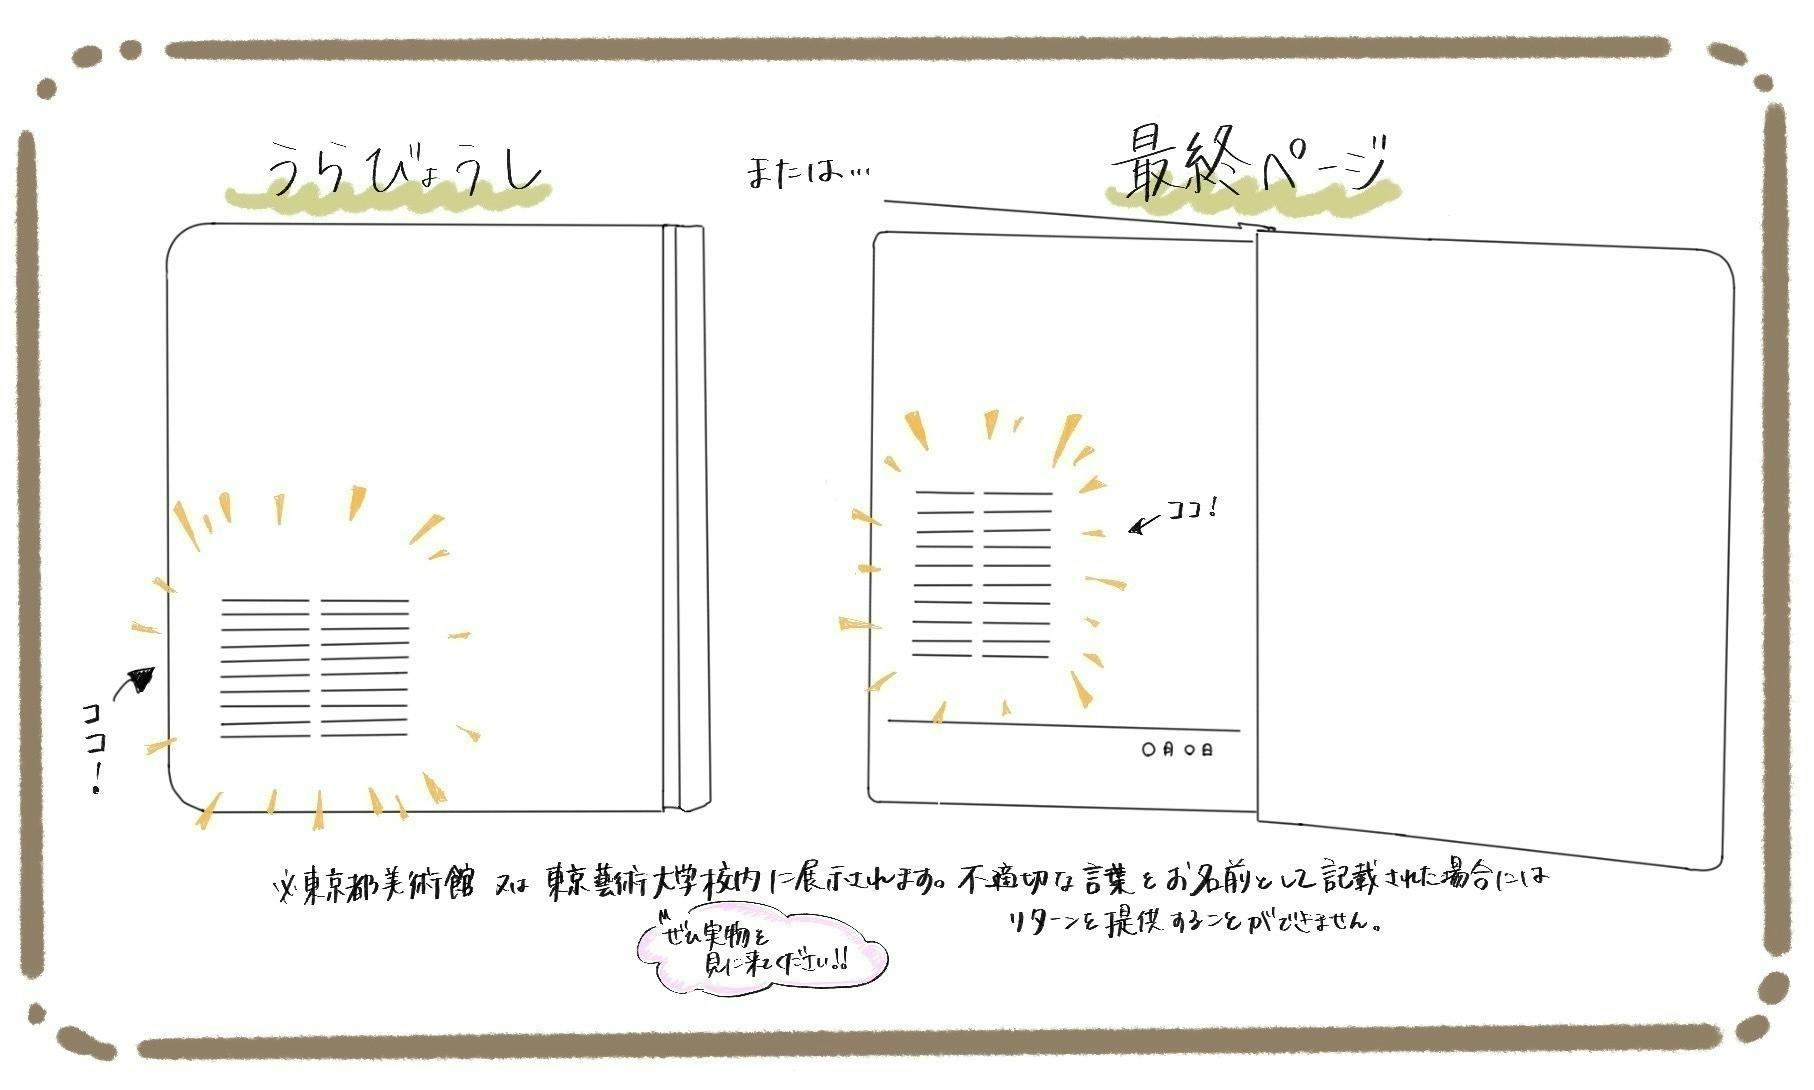 うらびょうし
または…
最終ページ
ココ!
ココ!
〇月〇日
※東京都美術館 又は 東京藝術大学校内に展示されます。不適切な言葉をお名前として記載された場合には
リターンを提供することができません。
ぜひ実物を
見に来てください!!